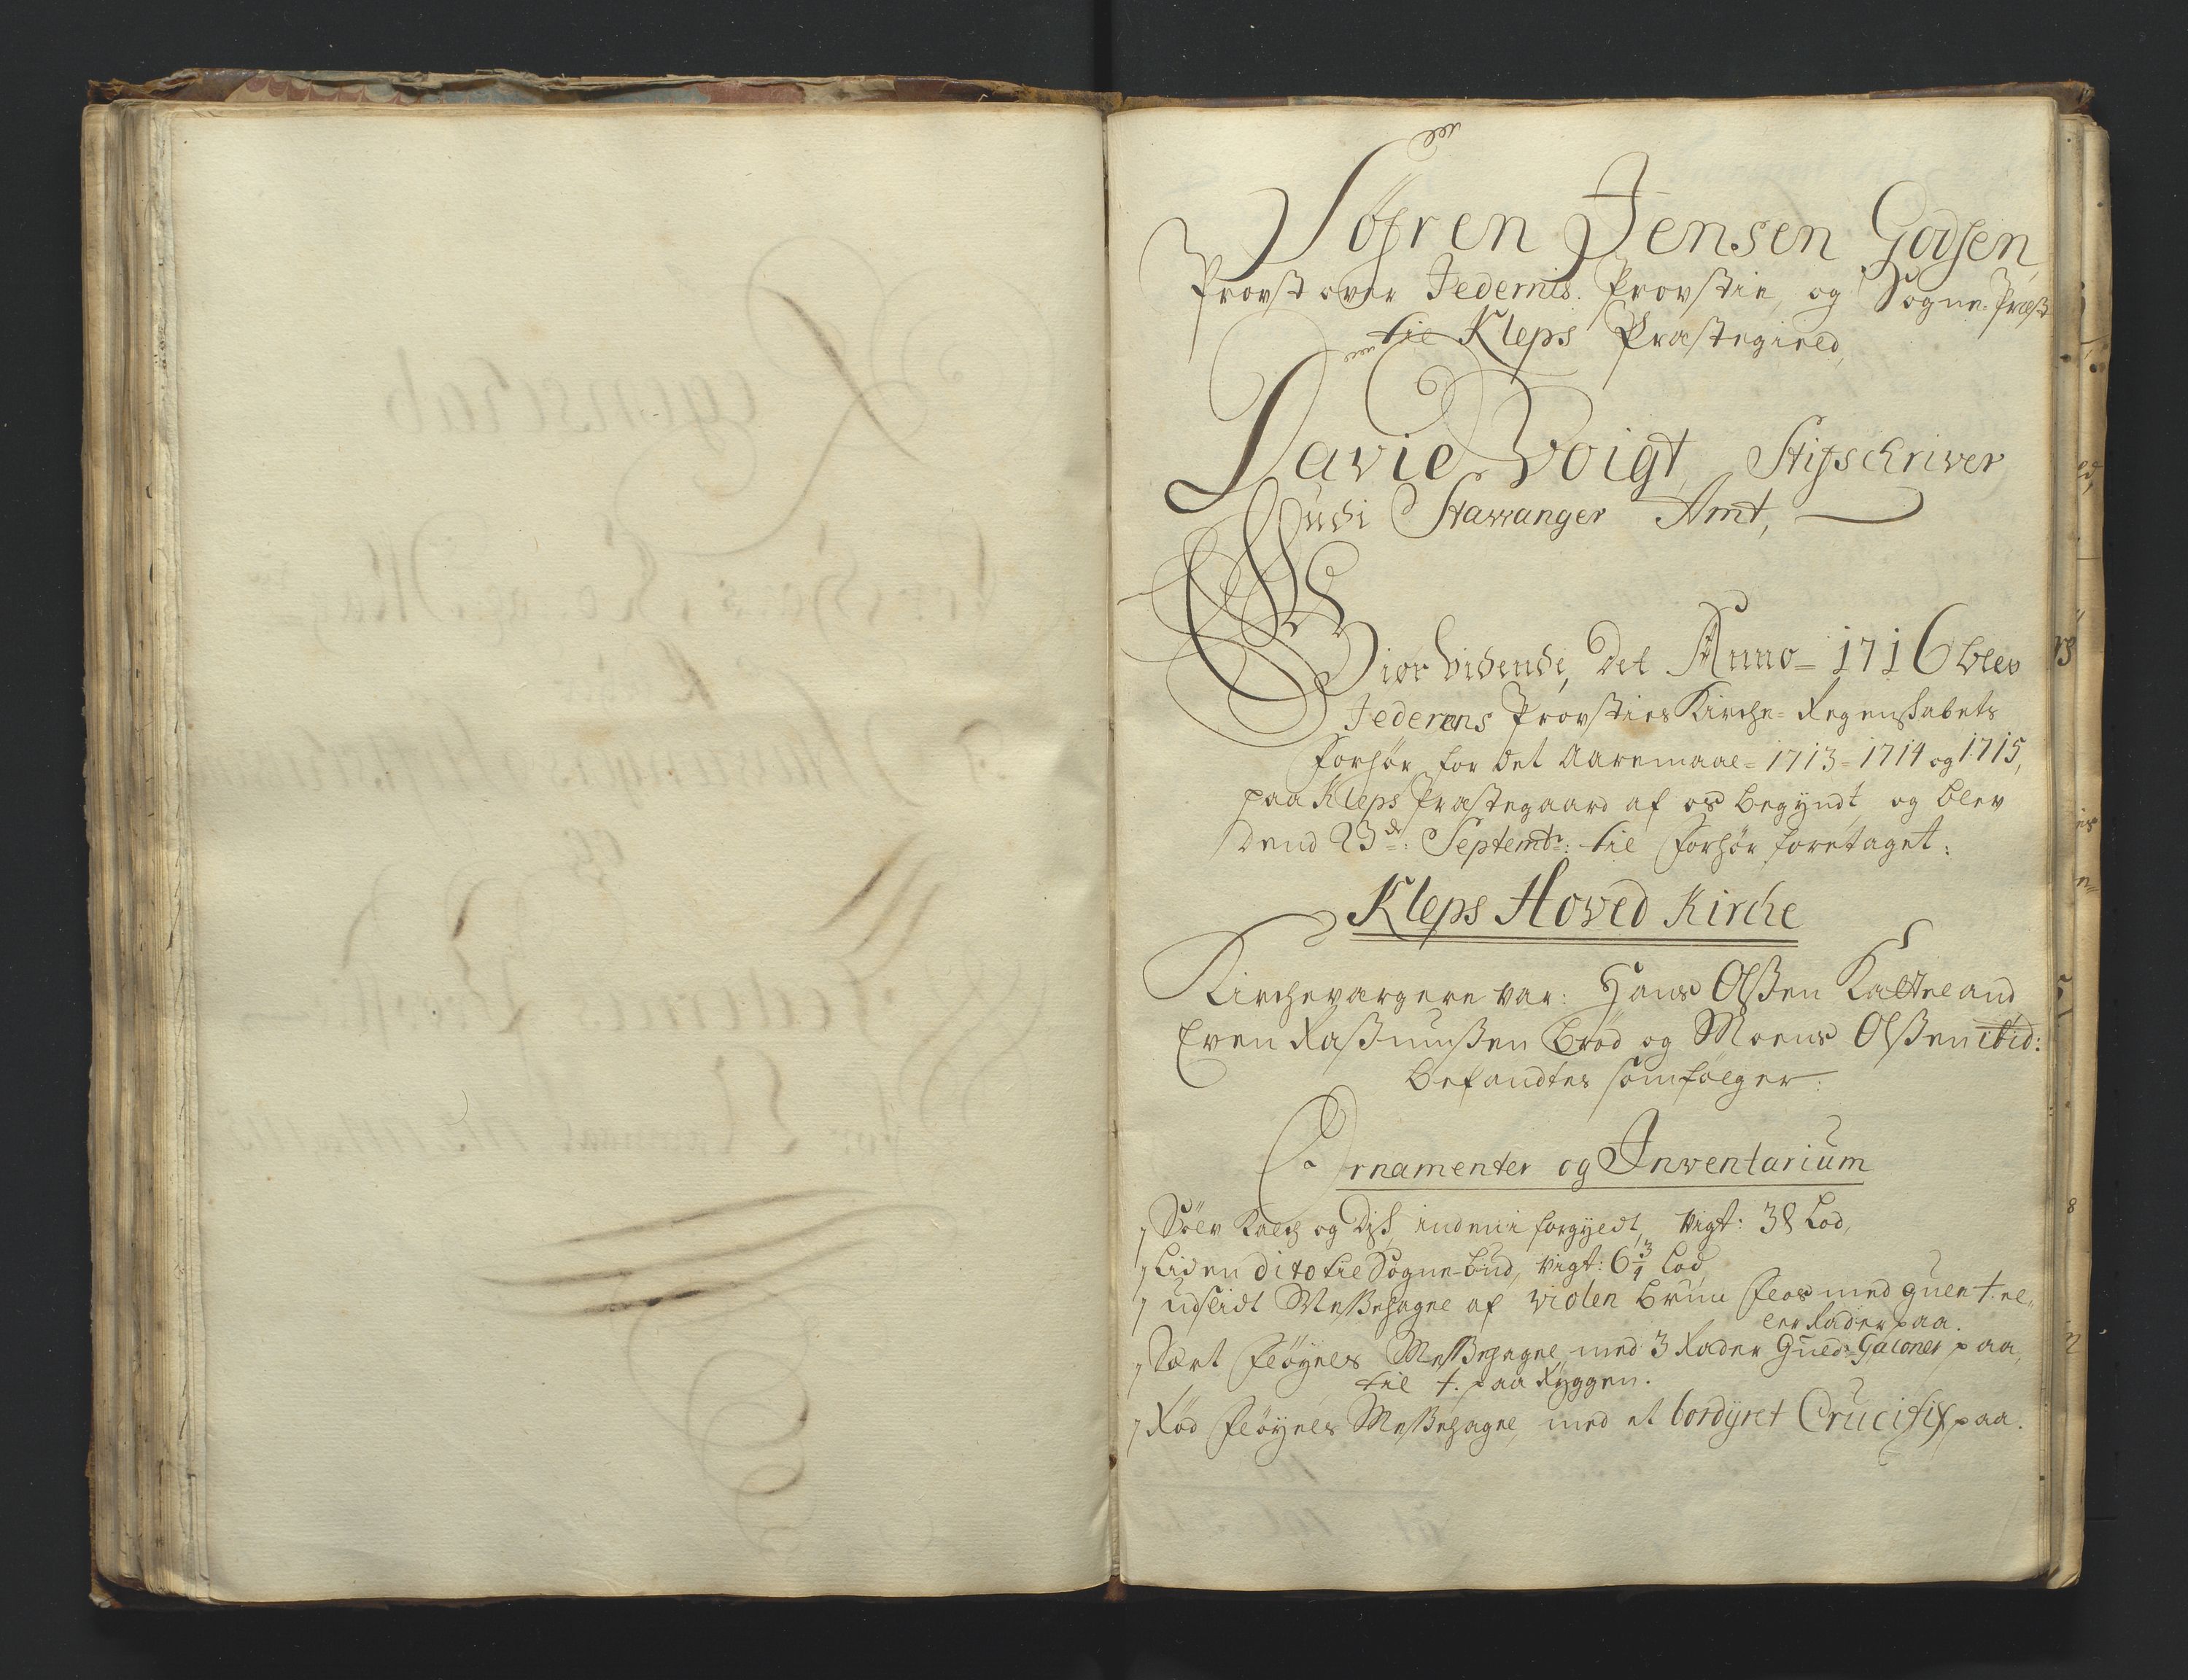 Søfren Jensen Godsen,
Provst over Jederens Provstie, og Sogne-Præst
til Kleps Præstegield,
David Voigt, Stifschriver
Udi Stavanger Amt,
Giør Vidende, Det Anno 1716 blev
Jederens Provsties Kirche-Regenskabets
Forhør for det Aaremaal 1713-1714 og 1715,
paa Kleps Præstegaard af os begyndt, og blev
dend 23de: Septembr: til Forhør foretaget:
Kleps Hoved Kirche
Kirchevargere var: Hans Olßen
Even Raßmusßen Bröd og Moens Olßen ibid:
befandtes som følger:
Ornamenter og Inventarium
1 Sölv Kalch og Disk, indeni forgyldt, Vigt: 38 Lod,
1 Liden dito til Sogne-bud, Vigt: 6 3/4 Lod,
1 udslidt Meßehagel af violen brun Flos med guele +. el„
ler Rader paa.
1 Sort Fløyels Meßehagel, med 3 Rader Guld-Galoner paa,
til +. paa Ryggen.
1 Rød Fløyels Meßehagel, med et bordyret Crucifix paa.